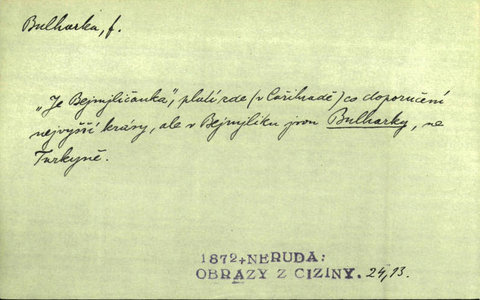 Bulharka, f.
„Je Bejmjličanka“, platí zde (v Cařihradě) co doporučení
nejvyšší krásy, ale v Bejmjliku jsou Bulharky, ne
Turkyně.
1872+NERUDA:
OBRAZY Z CIZINY. 24,13.